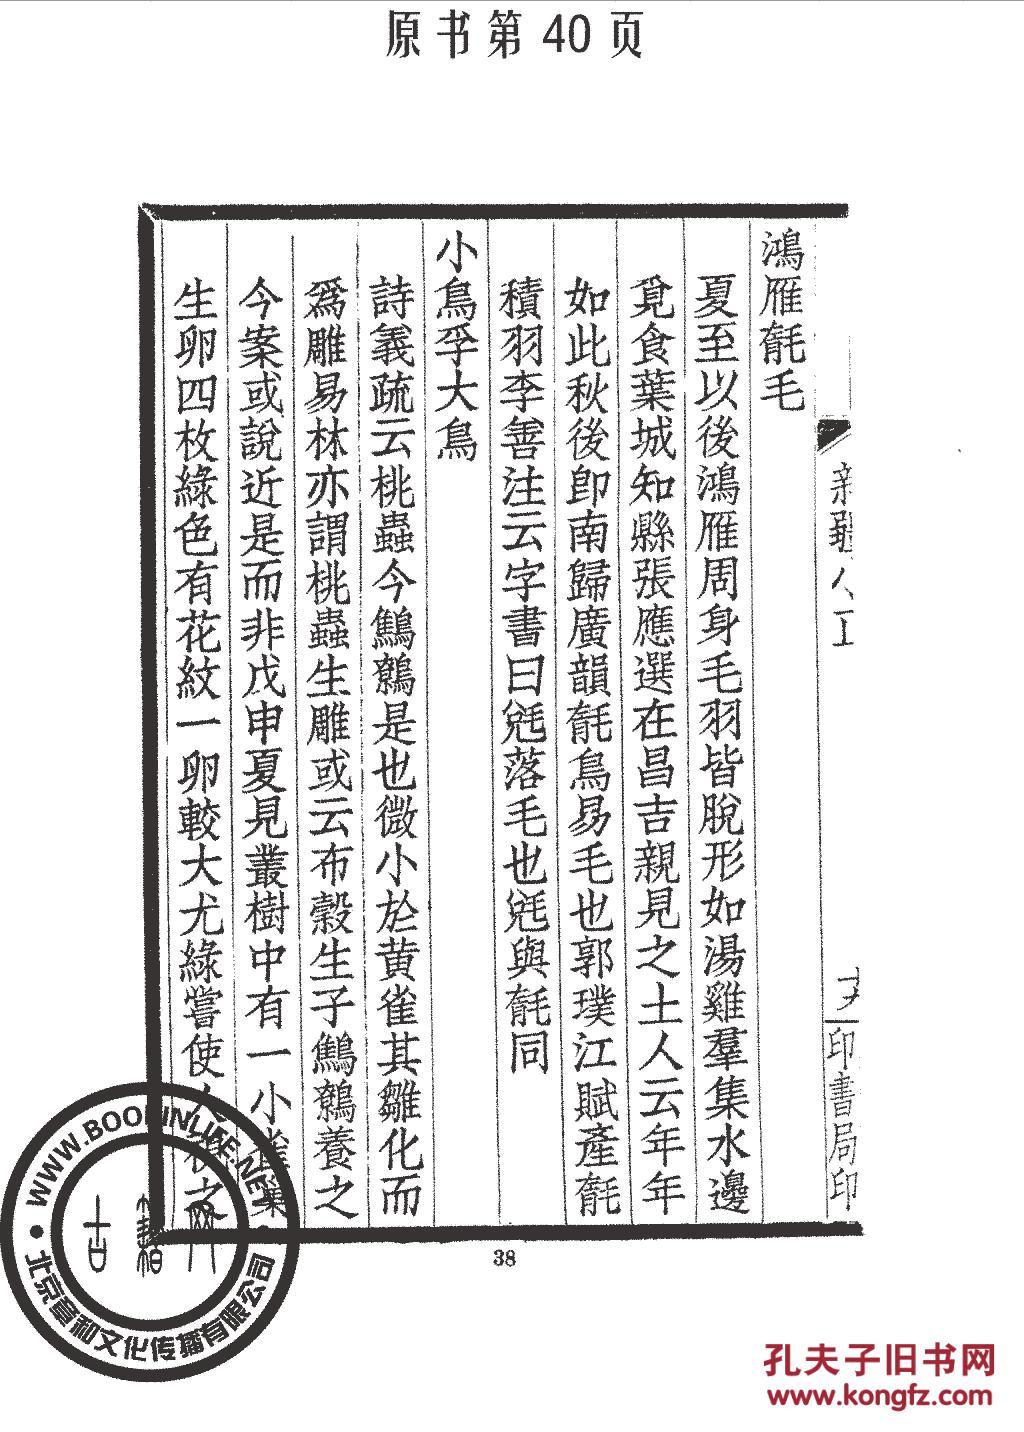 原书第 40 页
鴻雁毻毛
夏至以後鴻雁周身毛羽皆脫形如湯雞羣集水邊
覓食葉城知縣張應選在昌吉親見之土人云年年
如此秋後即南歸廣韻毻鳥易毛也郭璞江賦產毻
積羽李善注云字書曰毤落毛也毤與毻同
小鳥孚大鳥
詩義疏云桃蟲今鷦鷯是也微小於黃雀其雛化而
爲雕易林亦謂桃蟲生雕或云布穀生子鷦鷯養之
今案或說近是而非戊申夏見叢樹中有一小雀巢
生卵四枚綠色有花紋一卵較大尤綠嘗使人探之
印書局印
38
WWW.BOOKINLIFE.NET
古籍网
北京章和文化传播有限公司
孔夫子旧书网
www.kongfz.com